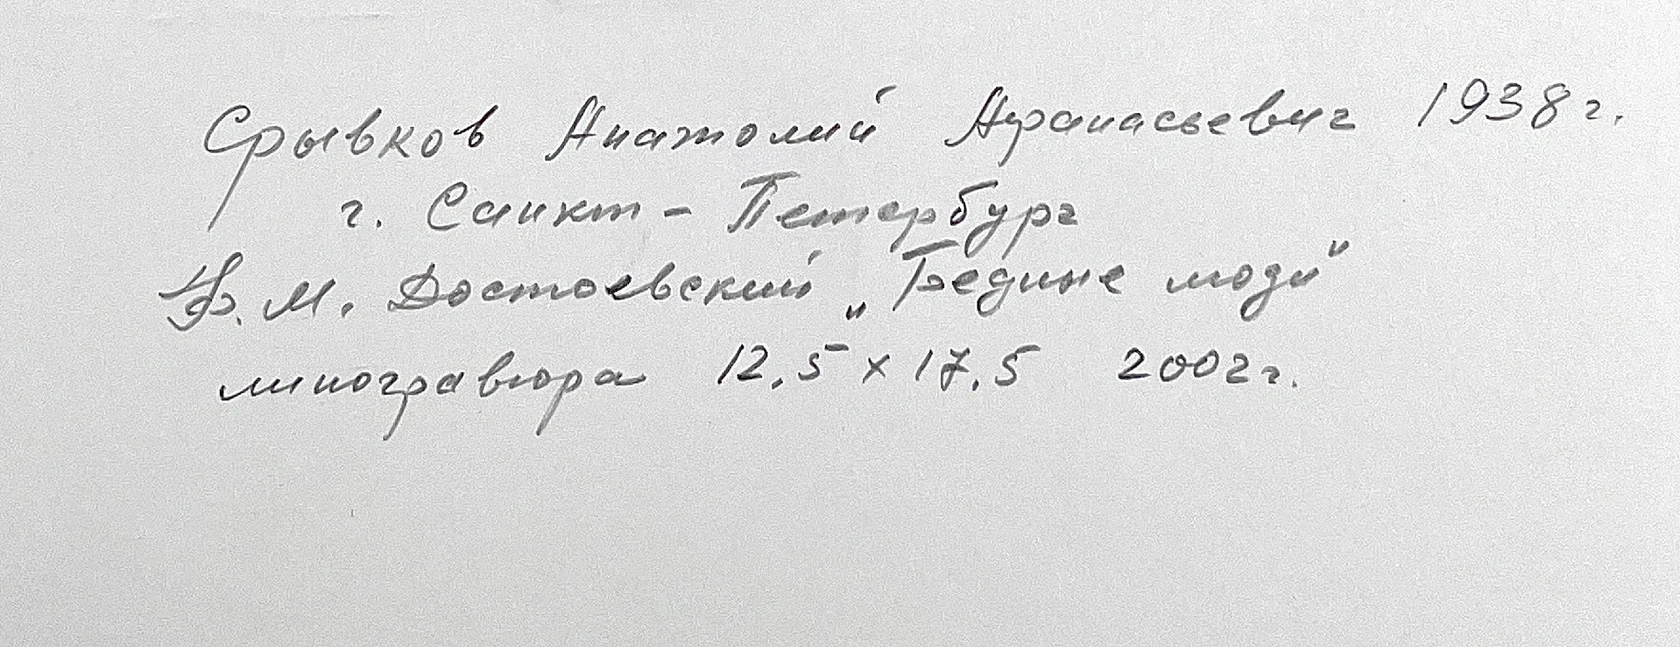 Срывков Анатолий Афанасьевич 1938 г.
г. Санкт - Петербург
Ф. М. Достоевский „Бедные люди"
линогравюра 12,5 x 17,5 2002 г.